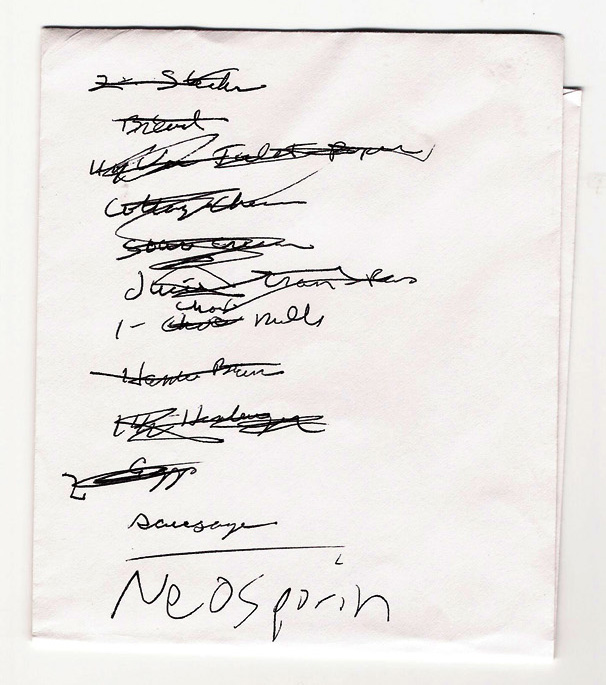 2- Steaks
Bread
Toilet Paper
Cottage Cheese
Sour Cream
Juice
choc
1- milk
Buns
Eggs
2
sausage
Neosporin